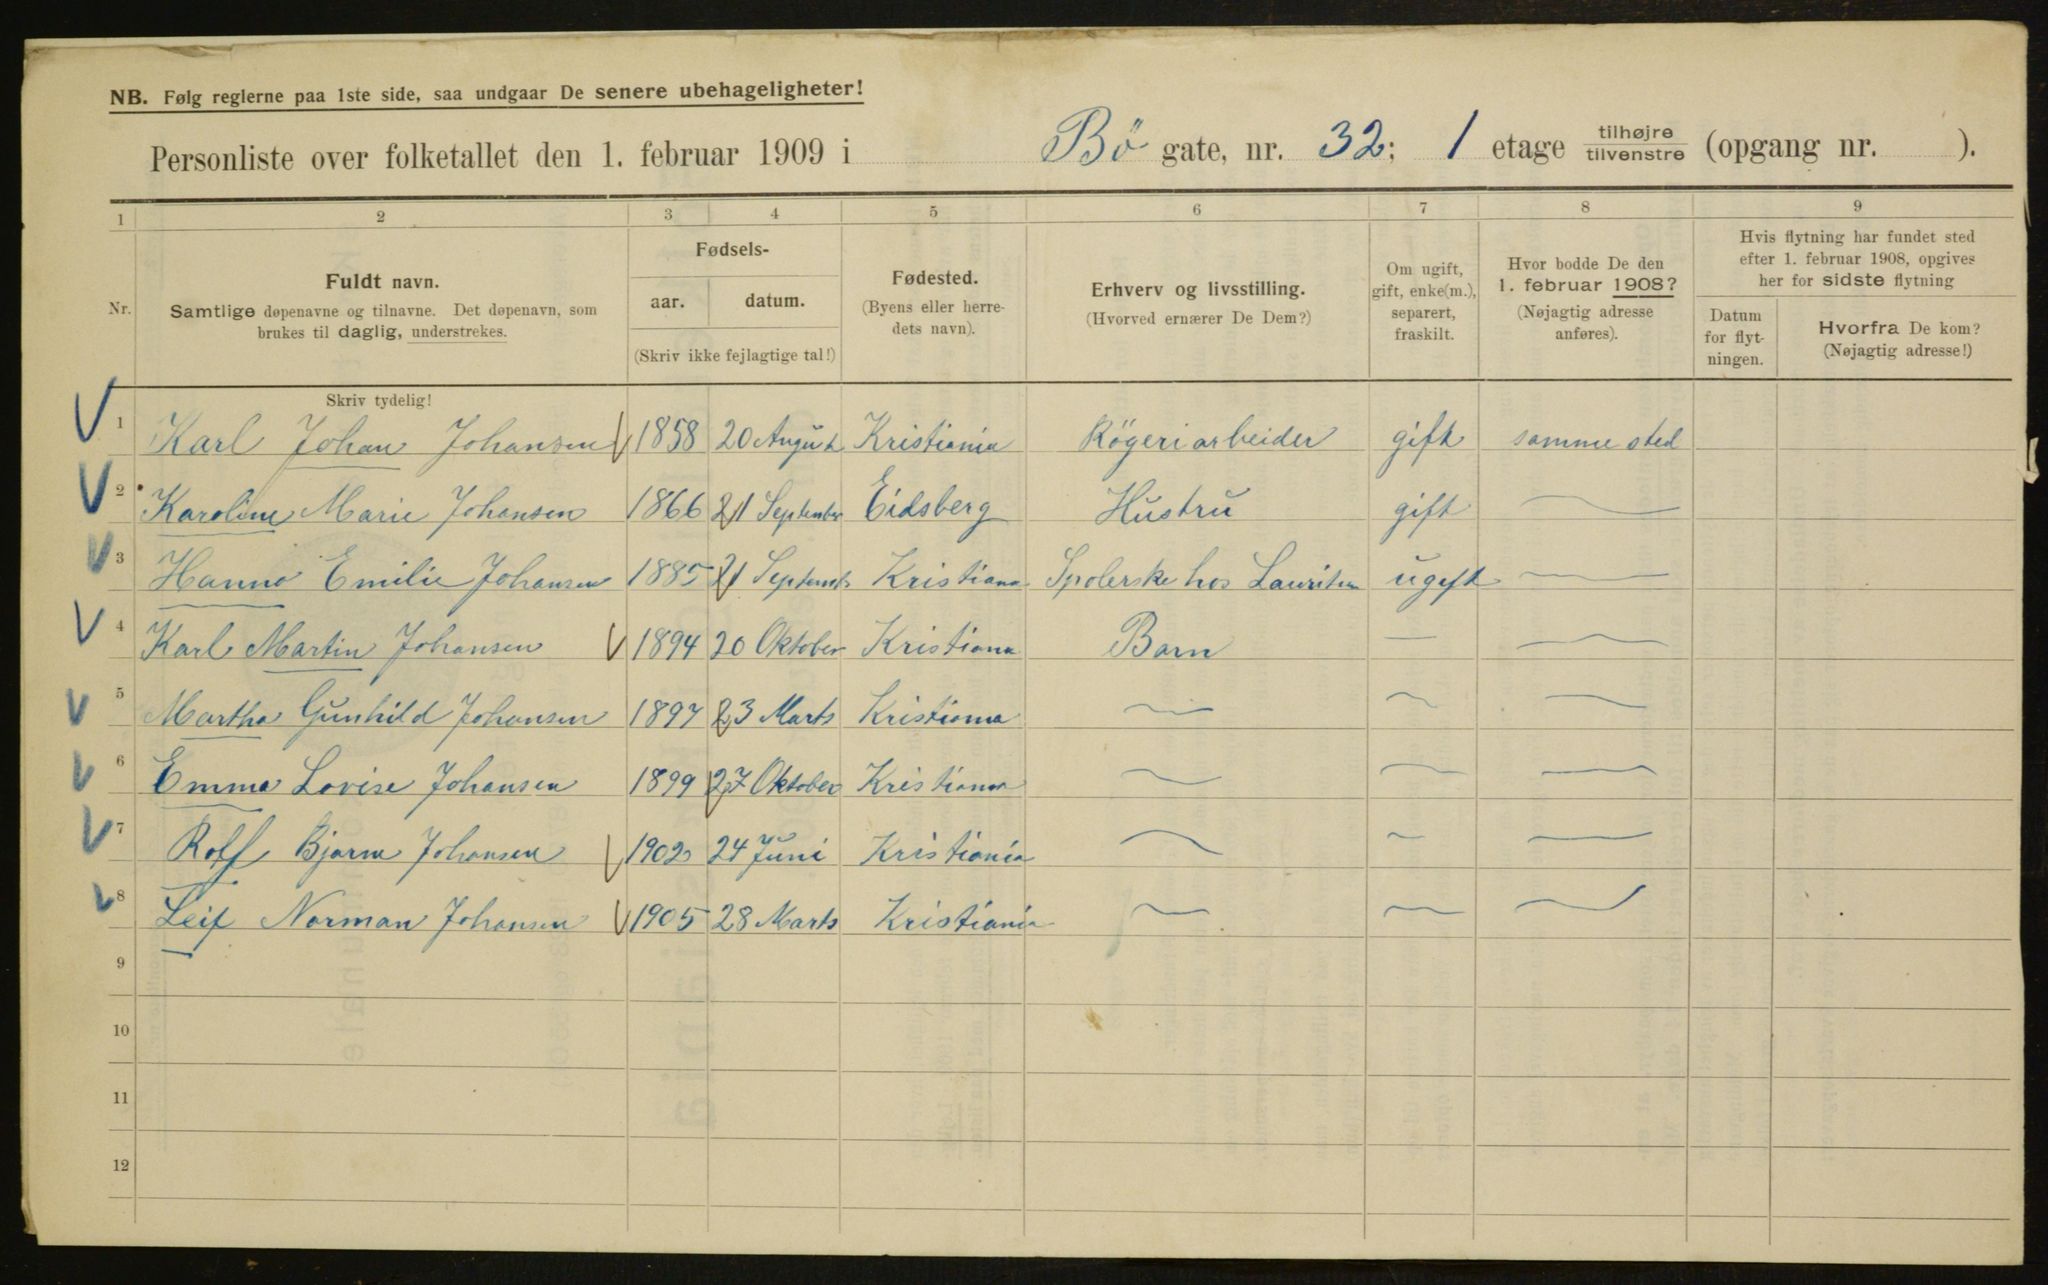 NB. Følg reglerne paa 1ste side, saa undgaar De senere ubehageligheter!
Personliste over folketallet den 1. februar 1909 i Bö gate, nr. 32; 1 etage tilhøjre tilvenstre (opgang nr. ).
1 2 3 4 5 6 7 8 9
Nr.
Fuldt navn.
Samtlige døpenavne og tilnavne. Det døpenavn, som
brukes til daglig, understrekes.
Skriv tydelig!
Fødsels-
aar. datum.
(Skriv ikke fejlagtige tal!)
Fødested.
(Byens eller herre-
dets navn).
Erhverv og livsstilling.
(Hvorved ernærer De Dem?)
Om ugift,
gift, enke(m.),
separert,
fraskilt.
Hvor bodde De den
1. februar 1908?
(Nøjagtig adresse
anføres).
Hvis flytning har fundet sted
efter 1. februar 1908, opgives
her for sidste flytning
Datum
for flyt-
ningen.
Hvorfra De kom?
(Nøjagtig adresse!)
1 Karl Johan Johansen 1858 20 August Kristiania Rögeriarbeider gift samme sted
2 Karoline Marie Johansen 1866 21 September Eidsberg Hustru gift
3 Hanna Emilie Johansen 1885 21 Septemb Kristiana Spolerske hos ugift
4 Karl Martin Johansen 1894 20 Oktober Kristiana Barn
5 Martha Gunhild Johansen 1897 23 Marts Kristiania
6 Emma Lovise Johansen 1899 27 Oktober Kristiana
7 Rolf Bjarne Johansen 1902 24 Juni Kristiania
8 Leif Norman Johansen 1905 28 Marts Kristiania
9
10
11
12